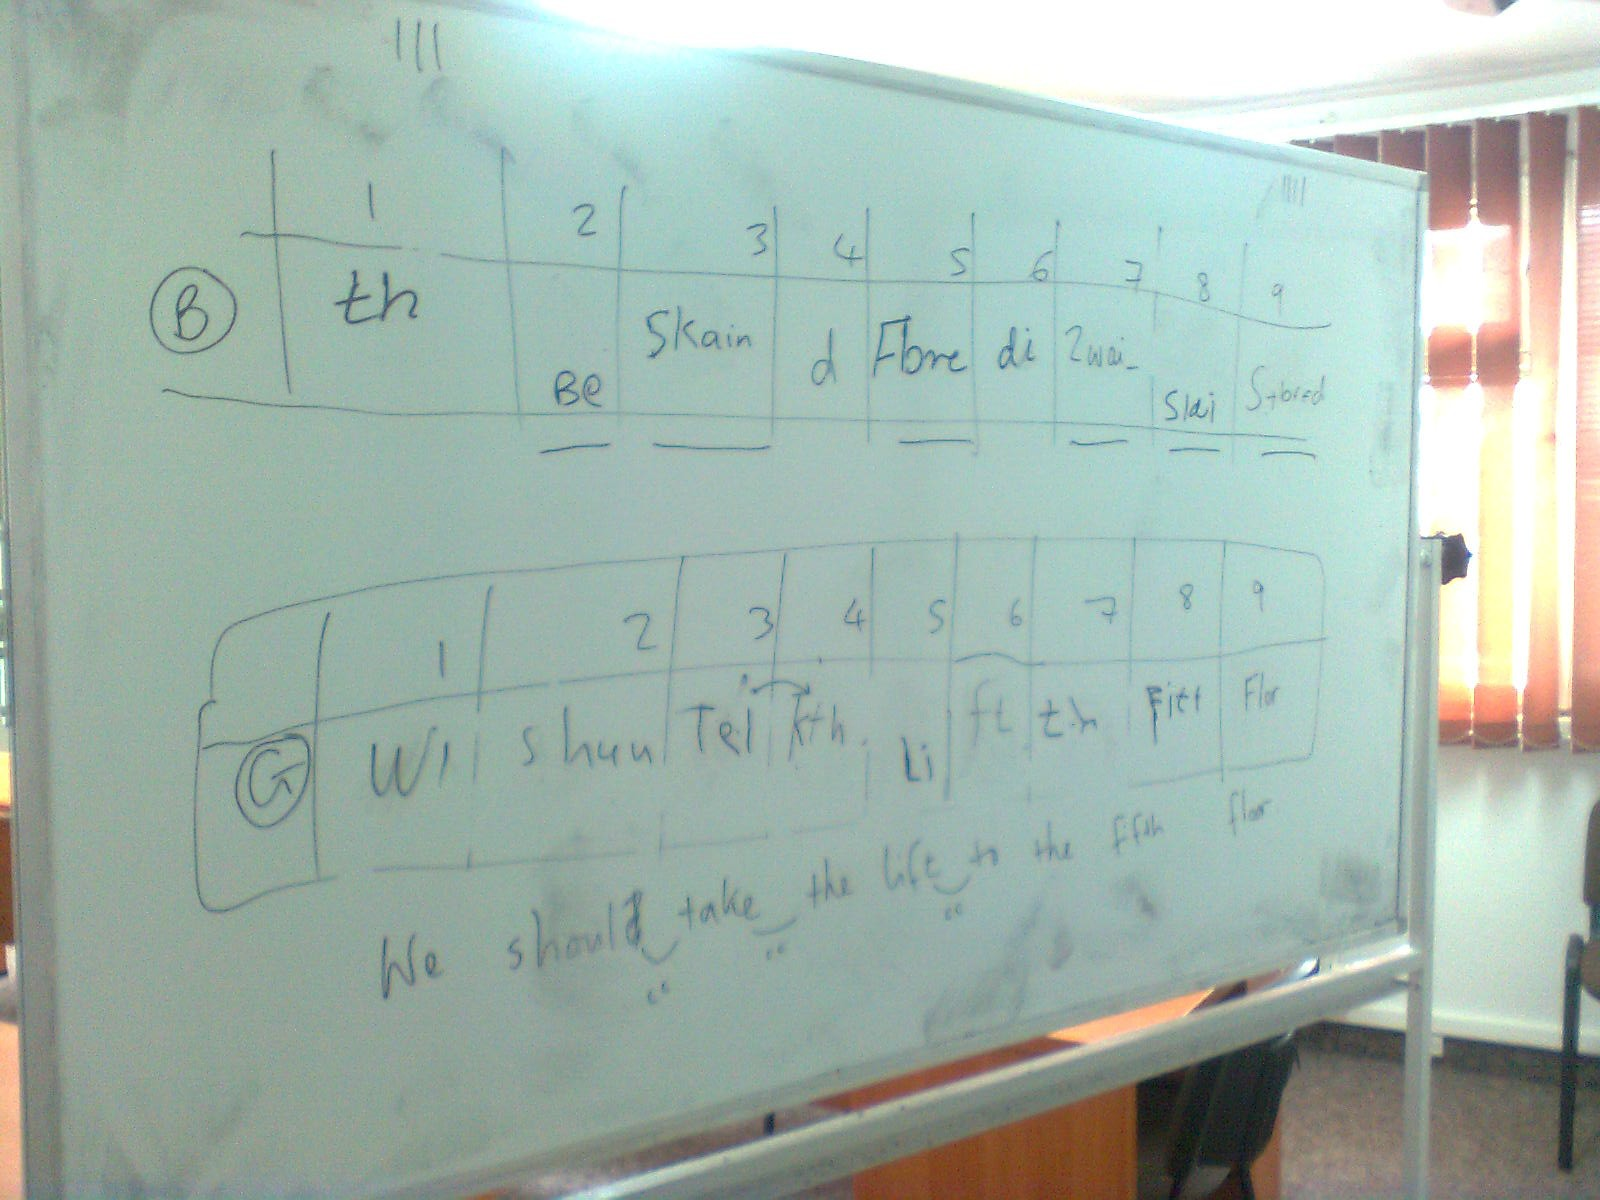 |||
||||
1 2 3 4 5 6 7 8 9
B th Be Skain d di Zwai Slai
1 2 3 4 5 6 7 8 9
G Wi Tei kth Li ft th Flor
We should take the lift to the fifth flor